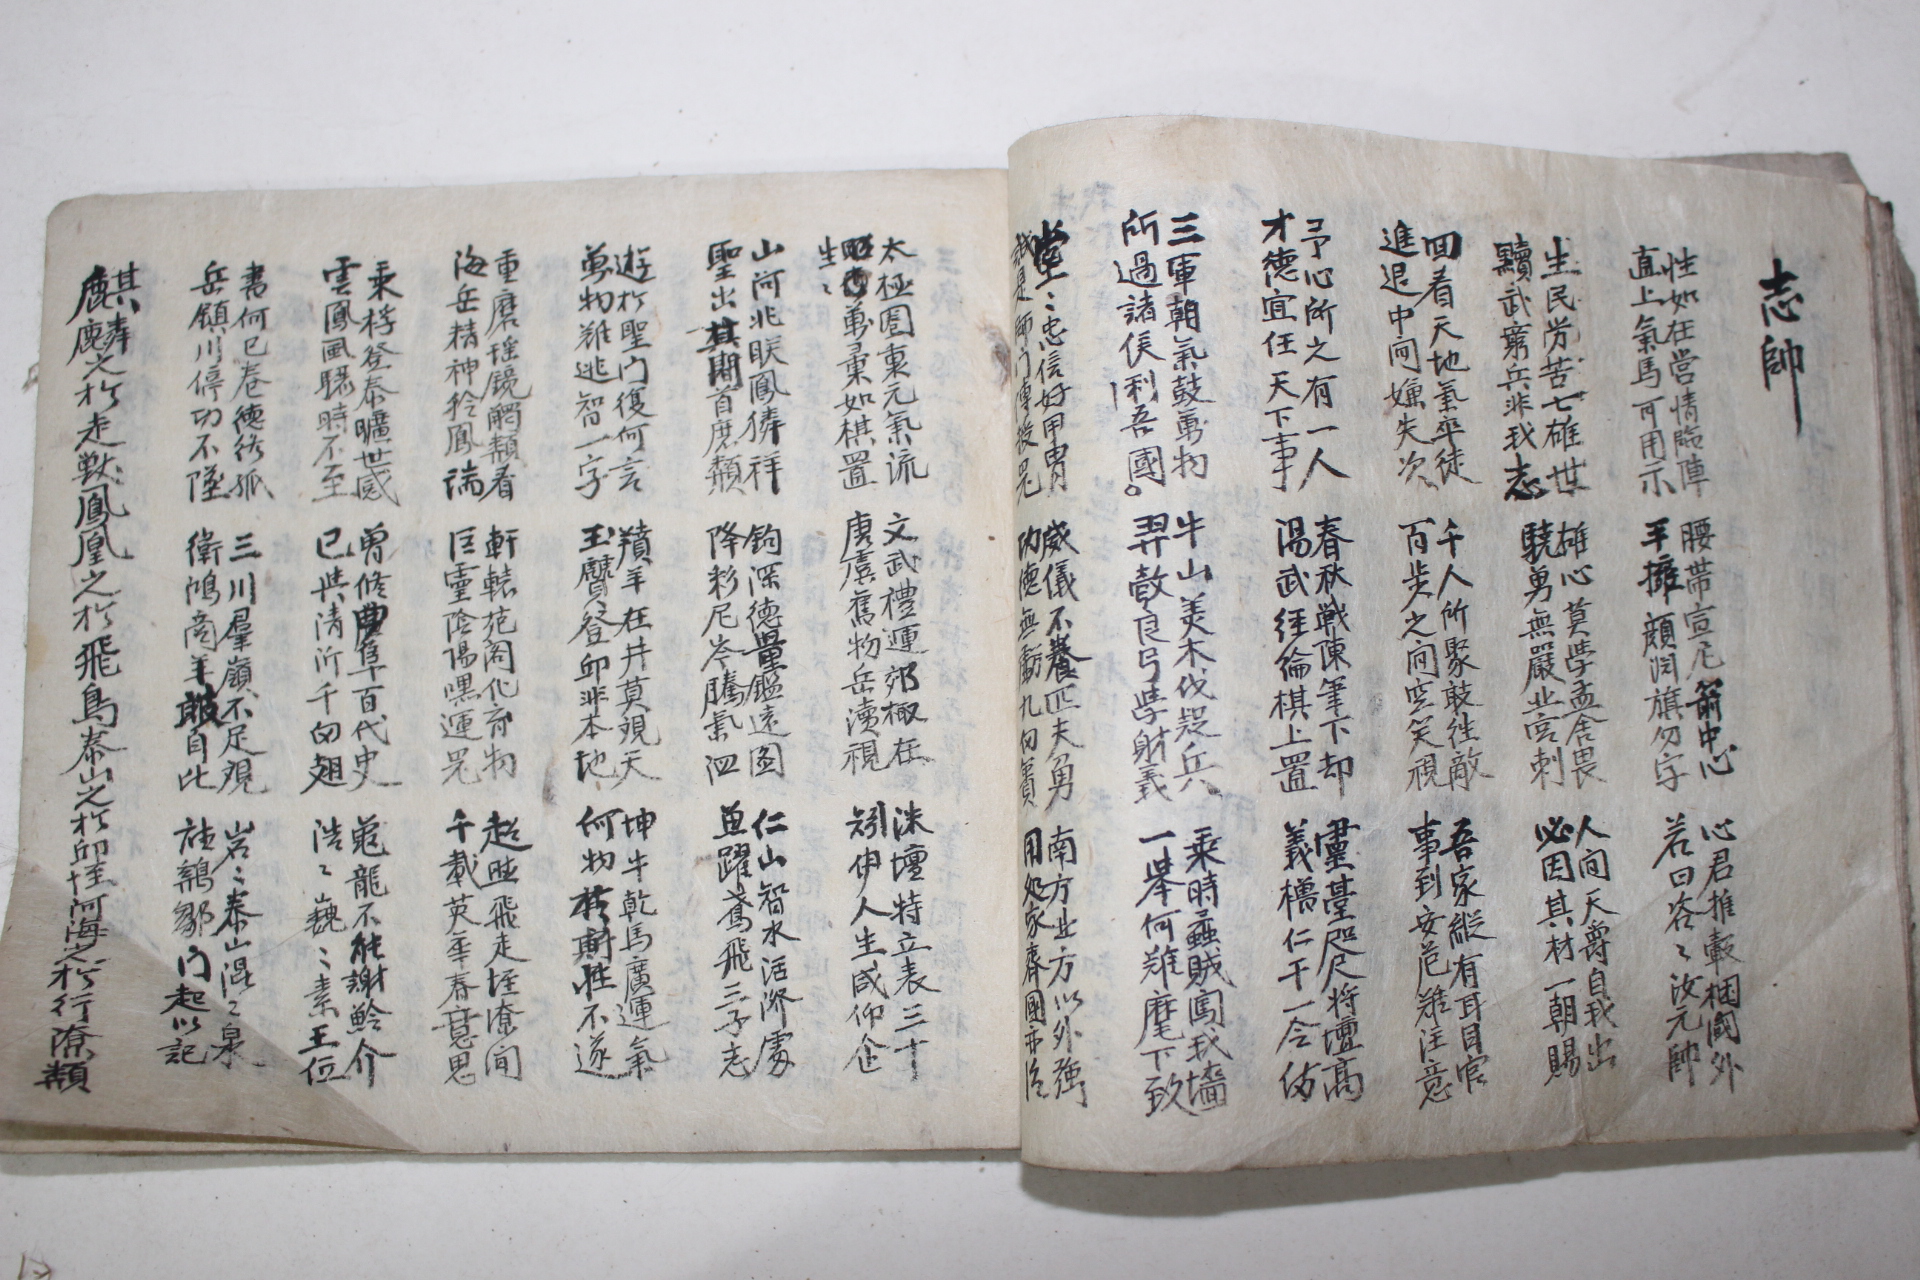 志帥
性如在當情臨陣
直上氣馬可用示
腰帶宣尼箭中心
手擁顔淵旗勿字
心君推轂梱閫外
若曰咨〻汝元帥
生民労苦七雄世
黷武窮兵非我志
雄心莫學孟舍畏
驍勇無嚴北宮刺
人间天爵自我出
必因其材一朝賜
回看天地氣卒徒
進退中间嫌失次
千人所聚敢往敵
百步之间空笑視
吾家縱有耳目官
事到安危難注意
予心所之有一人
才德宜任天下事
春秋戰陳筆下却
湯武経綸棋上置
靈臺咫尺將壇高
義櫓仁干一令
三軍朝氣鼓萬物
所過諸侯利吾國
牛山美木伐兵
羿彀良弓學射義
乘時賊闯我墻
一擧何難麾下致
堂〻忠信好甲冑
是師门傳授
威儀不養匹夫勇
功德無虧九仞簣
南方北方以外強
用処家齊國亦治
太極圈裏元氣流
生〻萬彙如棋置
文武禮運郊椒在
唐虞舊物岳瀆視
洙壇特立表三十
矧伊人生咸仰企
山河兆朕鳳獜祥
聖出其间首庶類
鈞深德量鑑遠图
降彩尼岑騰氣泗
仁山智水活潑處
魚躍鳶飛三子志
遊於聖门復何言
萬物難逃智一字
羵羊在井莫观天
玉麐登邱非本地
坤牛乾馬廣運氣
何物於斯性不遂
重磨瑶鏡觸類看
海岳精神於鳳瑞
軒轅苑阁化育物
巨靈陰陽嘿運
飛走垤潦间
千載英華春意思
乘桴登泰曠世感
雲鳳風騷時不至
曾修曲阜百代史
已與清沂千仞翅
龜龍不能謝鯰介
浩〻巍〻素王位
書何已卷德緒孤
岳鎮川停功不墜
三川羣嶺不足观
衛鴻商羊自比
岩〻泰山混〻泉
鄒门起以記
麒麟之於走獸鳳凰之於飛鳥泰山之於邱垤河海之於行潦類